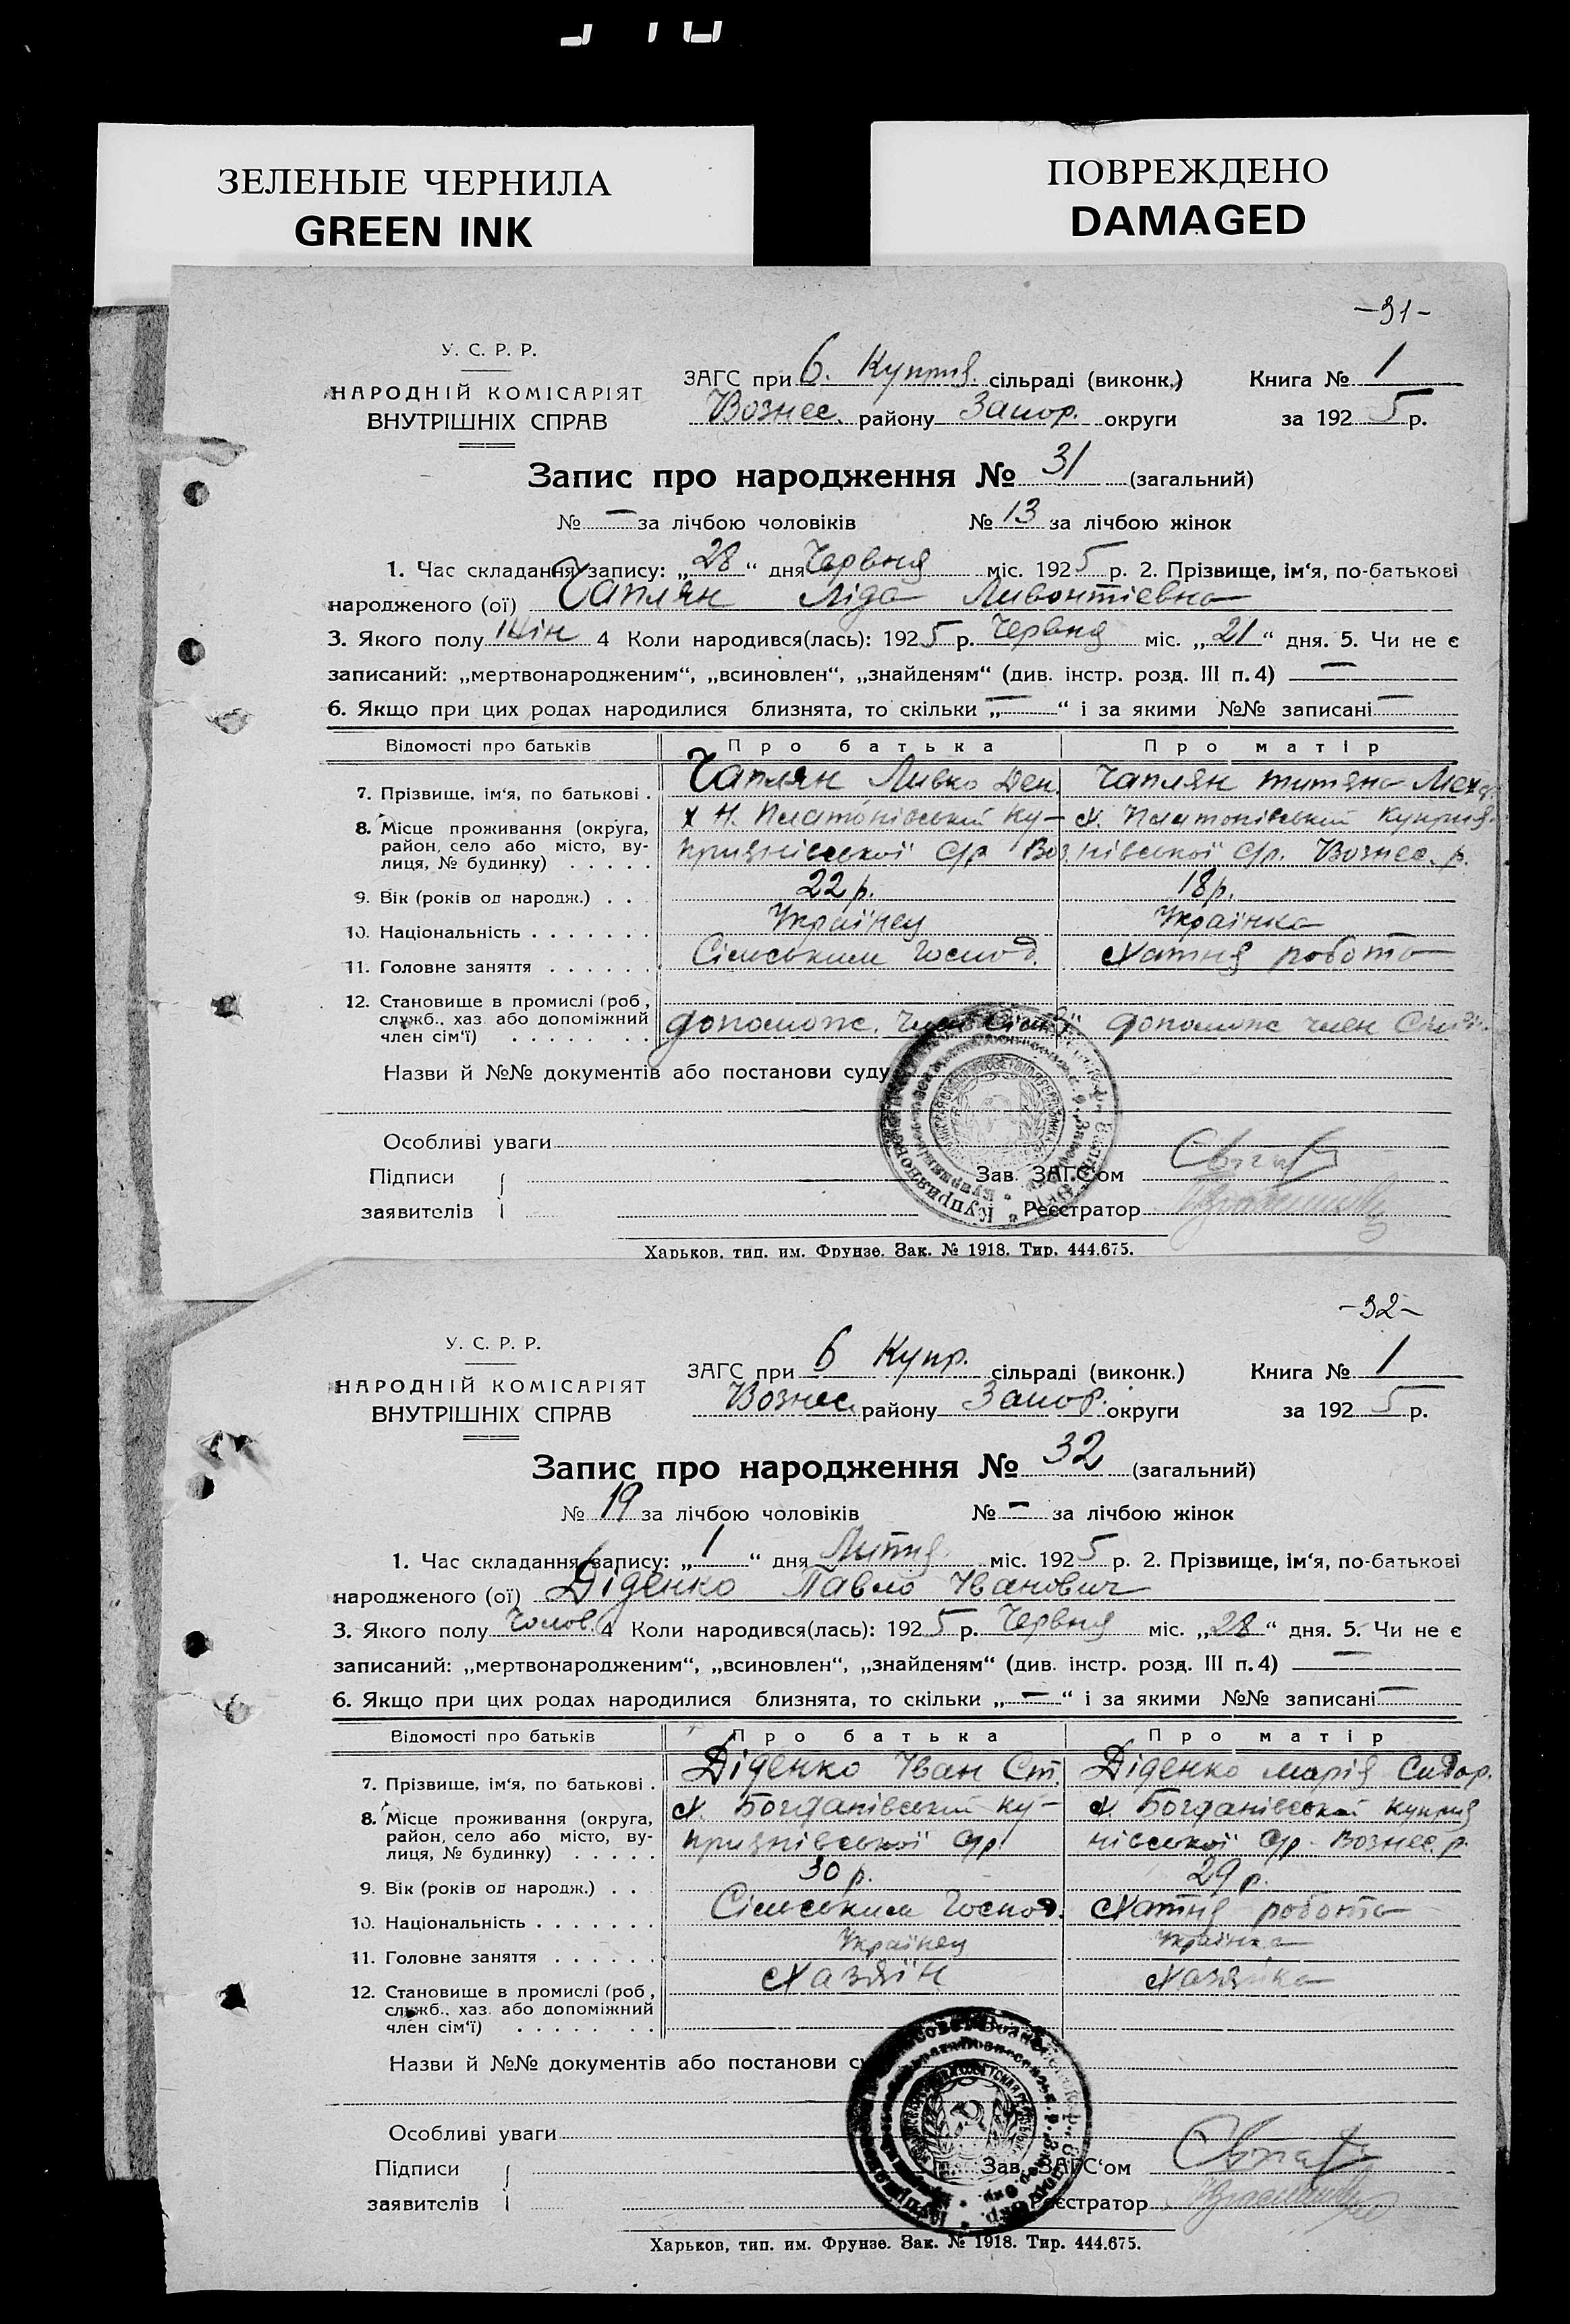 ЗЕЛЕНЫЕ ЧЕРНИЛА
GREEN INK
ПОВРЕЖДЕНО
DAMAGED
-31-
У. С. Р. Р.
НАРОДНІЙ КОМІСАРІЯТ
ВНУТРІШНІХ СПРАВ
ЗАГС при 6. Куприя. сільраді (виконк.) Книга № 1
Вознес. району Запор. округи за 1925 р.
Запис про народження № 31 (загальний)
№ — за лічбою чоловіків № 13 за лічбою жінок
1. Час складання запису: „28“ дня Червня міс. 1925 р. 2. Прізвище, ім‘я, по-батькові
народженого (ої) Чаплян Ліда Ливонтіевна
3. Якого полу Жін 4 Коли народився(лась): 1925 р. Червня міс. „21“ дня. 5. Чи не є
записаний: „мертвонародженим“, „всиновлен“, „знайденям“ (див. інстр. розд. III п. 4) —
6. Якщо при цих родах народилися близнята, то скільки „—“ і за якими №№ записані —
Відомості про батьків Про батька Про матір
7. Прізвище, ім‘я, по батькові . Чаплян Ливко Ден. Чаплян Титяна
8. Місце проживання (округа, х Н. Платонівський Ку- х. Платонівський Куприя-
район, село або місто, ву- приянівської с/р Воз. нівської с/р. Вознес. р.
лиця, № будинку) . . . . .
9. Вік (років од народж.) . . 22 р. 18 р.
10. Національність . . . . . . . Українец Українка
11. Головне заняття . . . . . . Сільським Господ. Хатня робота
12. Становище в промислі (роб.,
служб., хаз. або допоміжний допомож. член сім'ї допомож член Сім'ї
член сім‘ї) . . . . . . .
Назви й №№ документів або постанови суду
Особливі уваги
Підписи Зав. ЗАГС‘ом
заявителів Реєстратор
Харьков, тип. им. Фрунзе. Зак. № 1918. Тир. 444.675.
-32-
У. С. Р. Р.
НАРОДНІЙ КОМІСАРІЯТ
ВНУТРІШНІХ СПРАВ
ЗАГС при 6 Купр. сільраді (виконк.) Книга № 1
Вознес. району Запор. округи за 1925 р.
Запис про народження № 32 (загальний)
№ 19 за лічбою чоловіків № — за лічбою жінок
1. Час складання запису: „1“ дня Липня міс. 1925 р. 2. Прізвище, ім‘я, по-батькові
народженого (ої) Діденко Павло Іванович
3. Якого полу Чолов. 4 Коли народився(лась): 1925 р. Червня міс. „28“ дня. 5. Чи не є
записаний: „мертвонародженим“, „всиновлен“, „знайденям“ (див. інстр. розд. III п. 4) —
6. Якщо при цих родах народилися близнята, то скільки „—“ і за якими №№ записані —
Відомості про батьків Про батька Про матір
7. Прізвище, ім‘я, по батькові . Діденко Іван Ст. Діденко марія Сидор.
8. Місце проживання (округа, х. Богданівський Ку- х. Богданівській Куприя
район, село або місто, ву- приянівської с/р нівської с/р. Вознес. р.
лиця, № будинку) . . . . .
9. Вік (років од народж.) . . 30 р. 29 р.
10. Національність . . . . . . . Сільським Господ. Хатня робота
11. Головне заняття . . . . . . Українец Українка
12. Становище в промислі (роб., Хазяїн Хазяйка
служб., хаз. або допоміжний
член сім‘ї) . . . . . . .
Назви й №№ документів або постанови
Особливі уваги
Підписи Зав. ЗАГС‘ом
заявителів Реєстратор
Харьков, тип. им. Фрунзе. Зак. № 1918. Тир. 444.675.